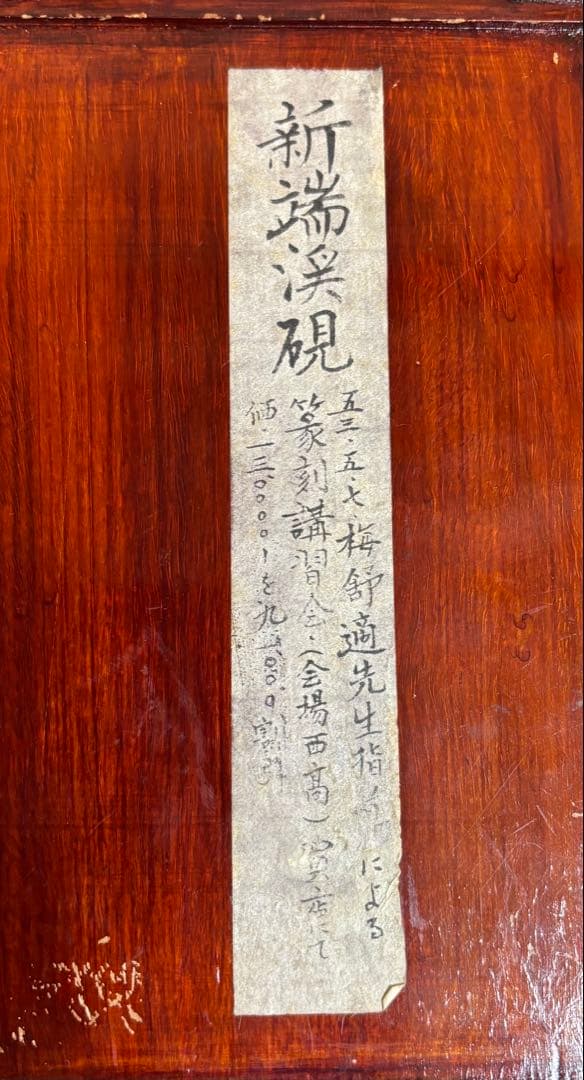 新端渓硯
五三・五・七・梅舒適先生指による
篆刻講習会・(会場西高)売店にて
価・一三〇〇〇〇ーを九五〇〇〇